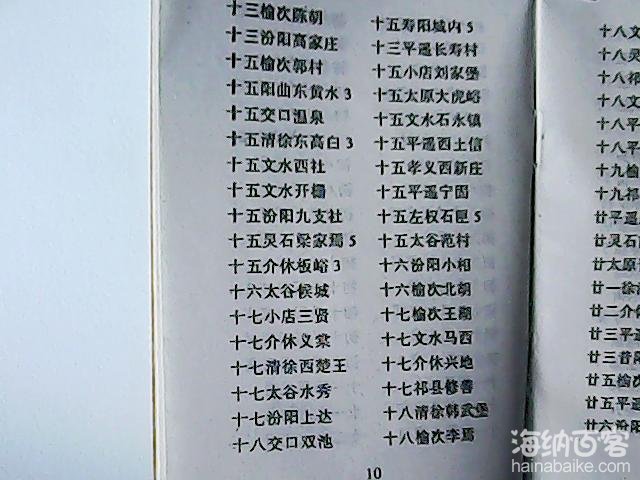 十三榆次陈胡
十三汾阳高家庄
十五榆次郭村
十五阳曲东黄水 3
十五交口温泉
十五清徐东高白 3
十五文水西社
十五文水开栅
十五汾阳九支社
十五灵石梁家焉 5
十五介休板峪 3
十六太谷候城
十七小店三贤
十七介休义棠
十七清徐西楚王
十七太谷水秀
十七汾阳上达
十八交口双池
十五寿阳城内 5
十三平遥长寿村
十五小店刘家堡
十五太原大虎峪
十五文水石永镇
十五平遥西土信
十五孝义西新庄
十五平遥宁固
十五左权石匣 5
十五太谷范村
十六汾阳小相
十六榆次北胡
十七榆次王湖
十七文水马西
十七介休兴地
十七祁县修善
十八清徐韩武堡
十八榆次李焉
10
十八文
十八灵
十八祁
十八文
十八平
十八平
十九榆
十九祁
廿平遥
廿灵石
廿太原
廿一徐
廿二介
廿三平
廿三昔
廿五榆
廿五平
廿六汾
海纳百客
hainabaike.com